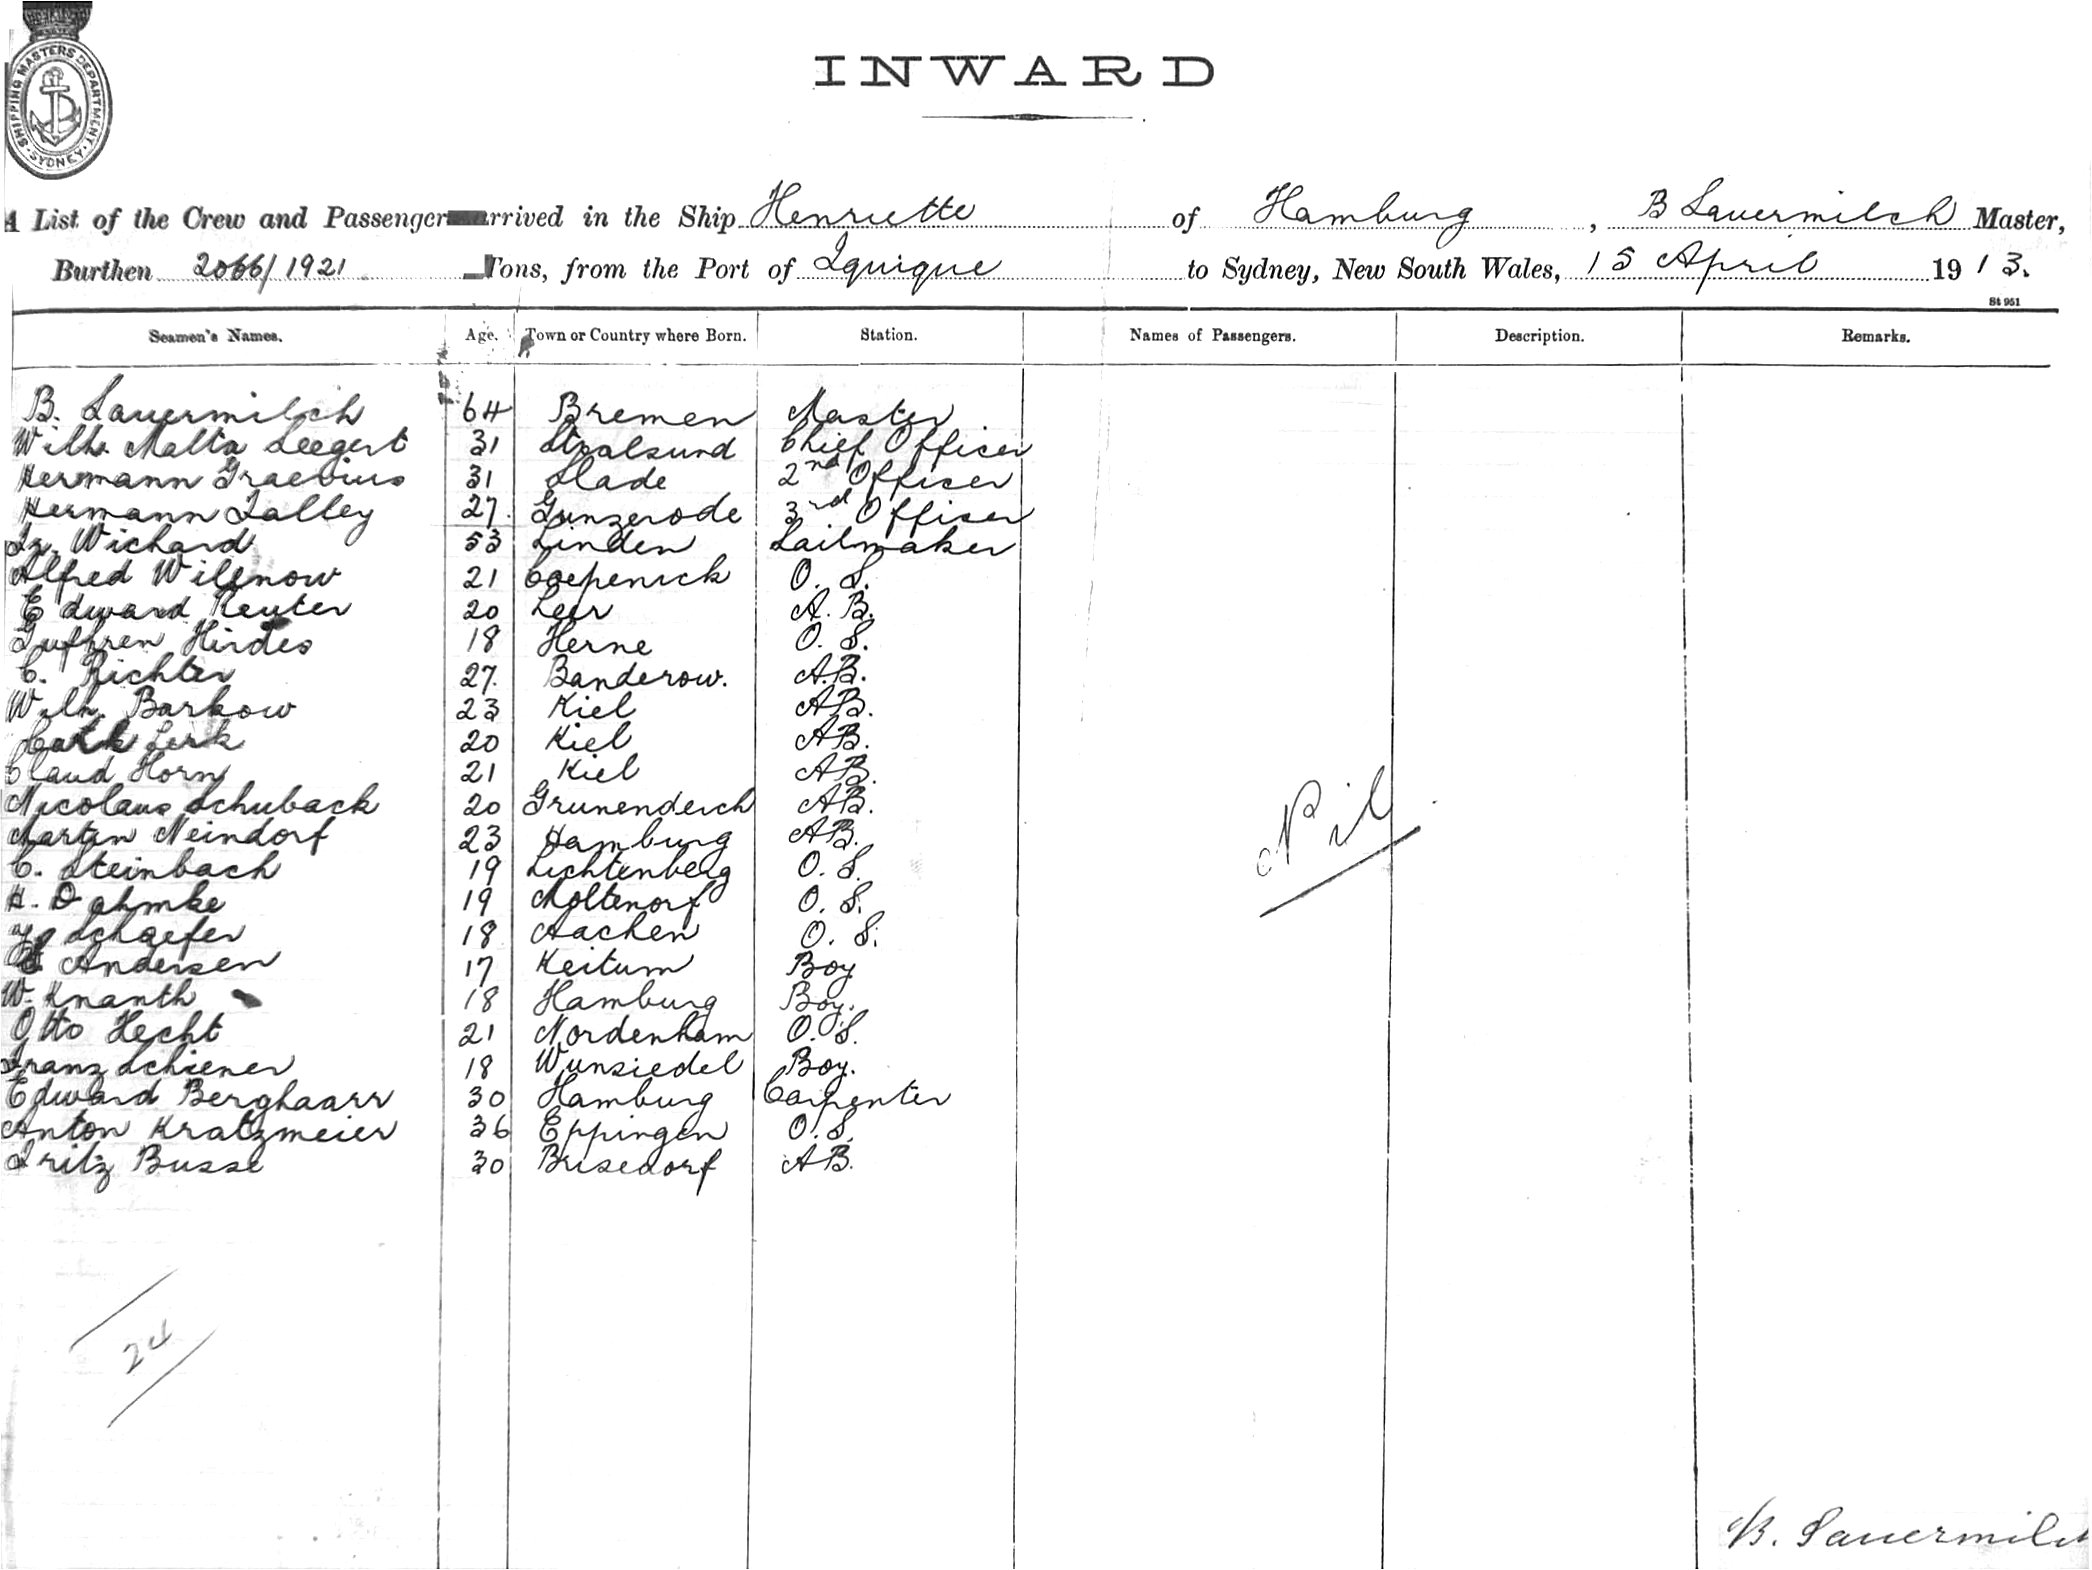 SHIPPING MASTERS DEPARTMENT. SYDNEY.
INWARD
A List of the Crew and Passenger arrived in the Ship Henriette of Hamburg, B Sauermilch Master,
Burthen 2066/1921 Tons, from the Port of Iquique to Sydney, New South Wales, 15 April 1913.
St 951
Seamen's Names. Age. Town or Country where Born. Station. Names of Passengers. Description. Remarks.
B. Sauermilch 64 Bremen Master
Wilh. Malta Seegert 31 Stralsund Chief Officer
Hermann Graevius 31 Stade 2nd Officer
Hermann Talley 27. Gunzerode 3rd Officer
Fr. Wichard 53 Linden Sailmaker
Alfred Willnow 21 Coepenick O. S.
Edward Reuter 20 Leer A. B.
Hirdes 18 Herne O. S.
C. Richter 27. Banderow. A.B.
Wilh. Barkow 23 Kiel AB.
Lerk 20 Kiel AB.
Claud Horn 21 Kiel AB.
Nicolaus Schuback 20 Grunendeich AB.
Martin Neindorf 23 Hamburg AB.
C. Steinbach 19 Lichtenberg O. S.
H. Dahmke 19 Moltenorf O. S.
Schaefer 18 Aachen O. S.
Andersen 17 Keitum Boy
W. Knanth 18 Hamburg Boy.
Otto Hecht 21 Nordenham O. S.
Franz Schiener 18 Wunsiedel Boy.
Edward Berghaarr 30 Hamburg Carpenter
Anton Kratzmeier 36 Eppingen O. S.
Fritz Busse 30 Brisedorf AB.
Nil
24
B. Sauermilch